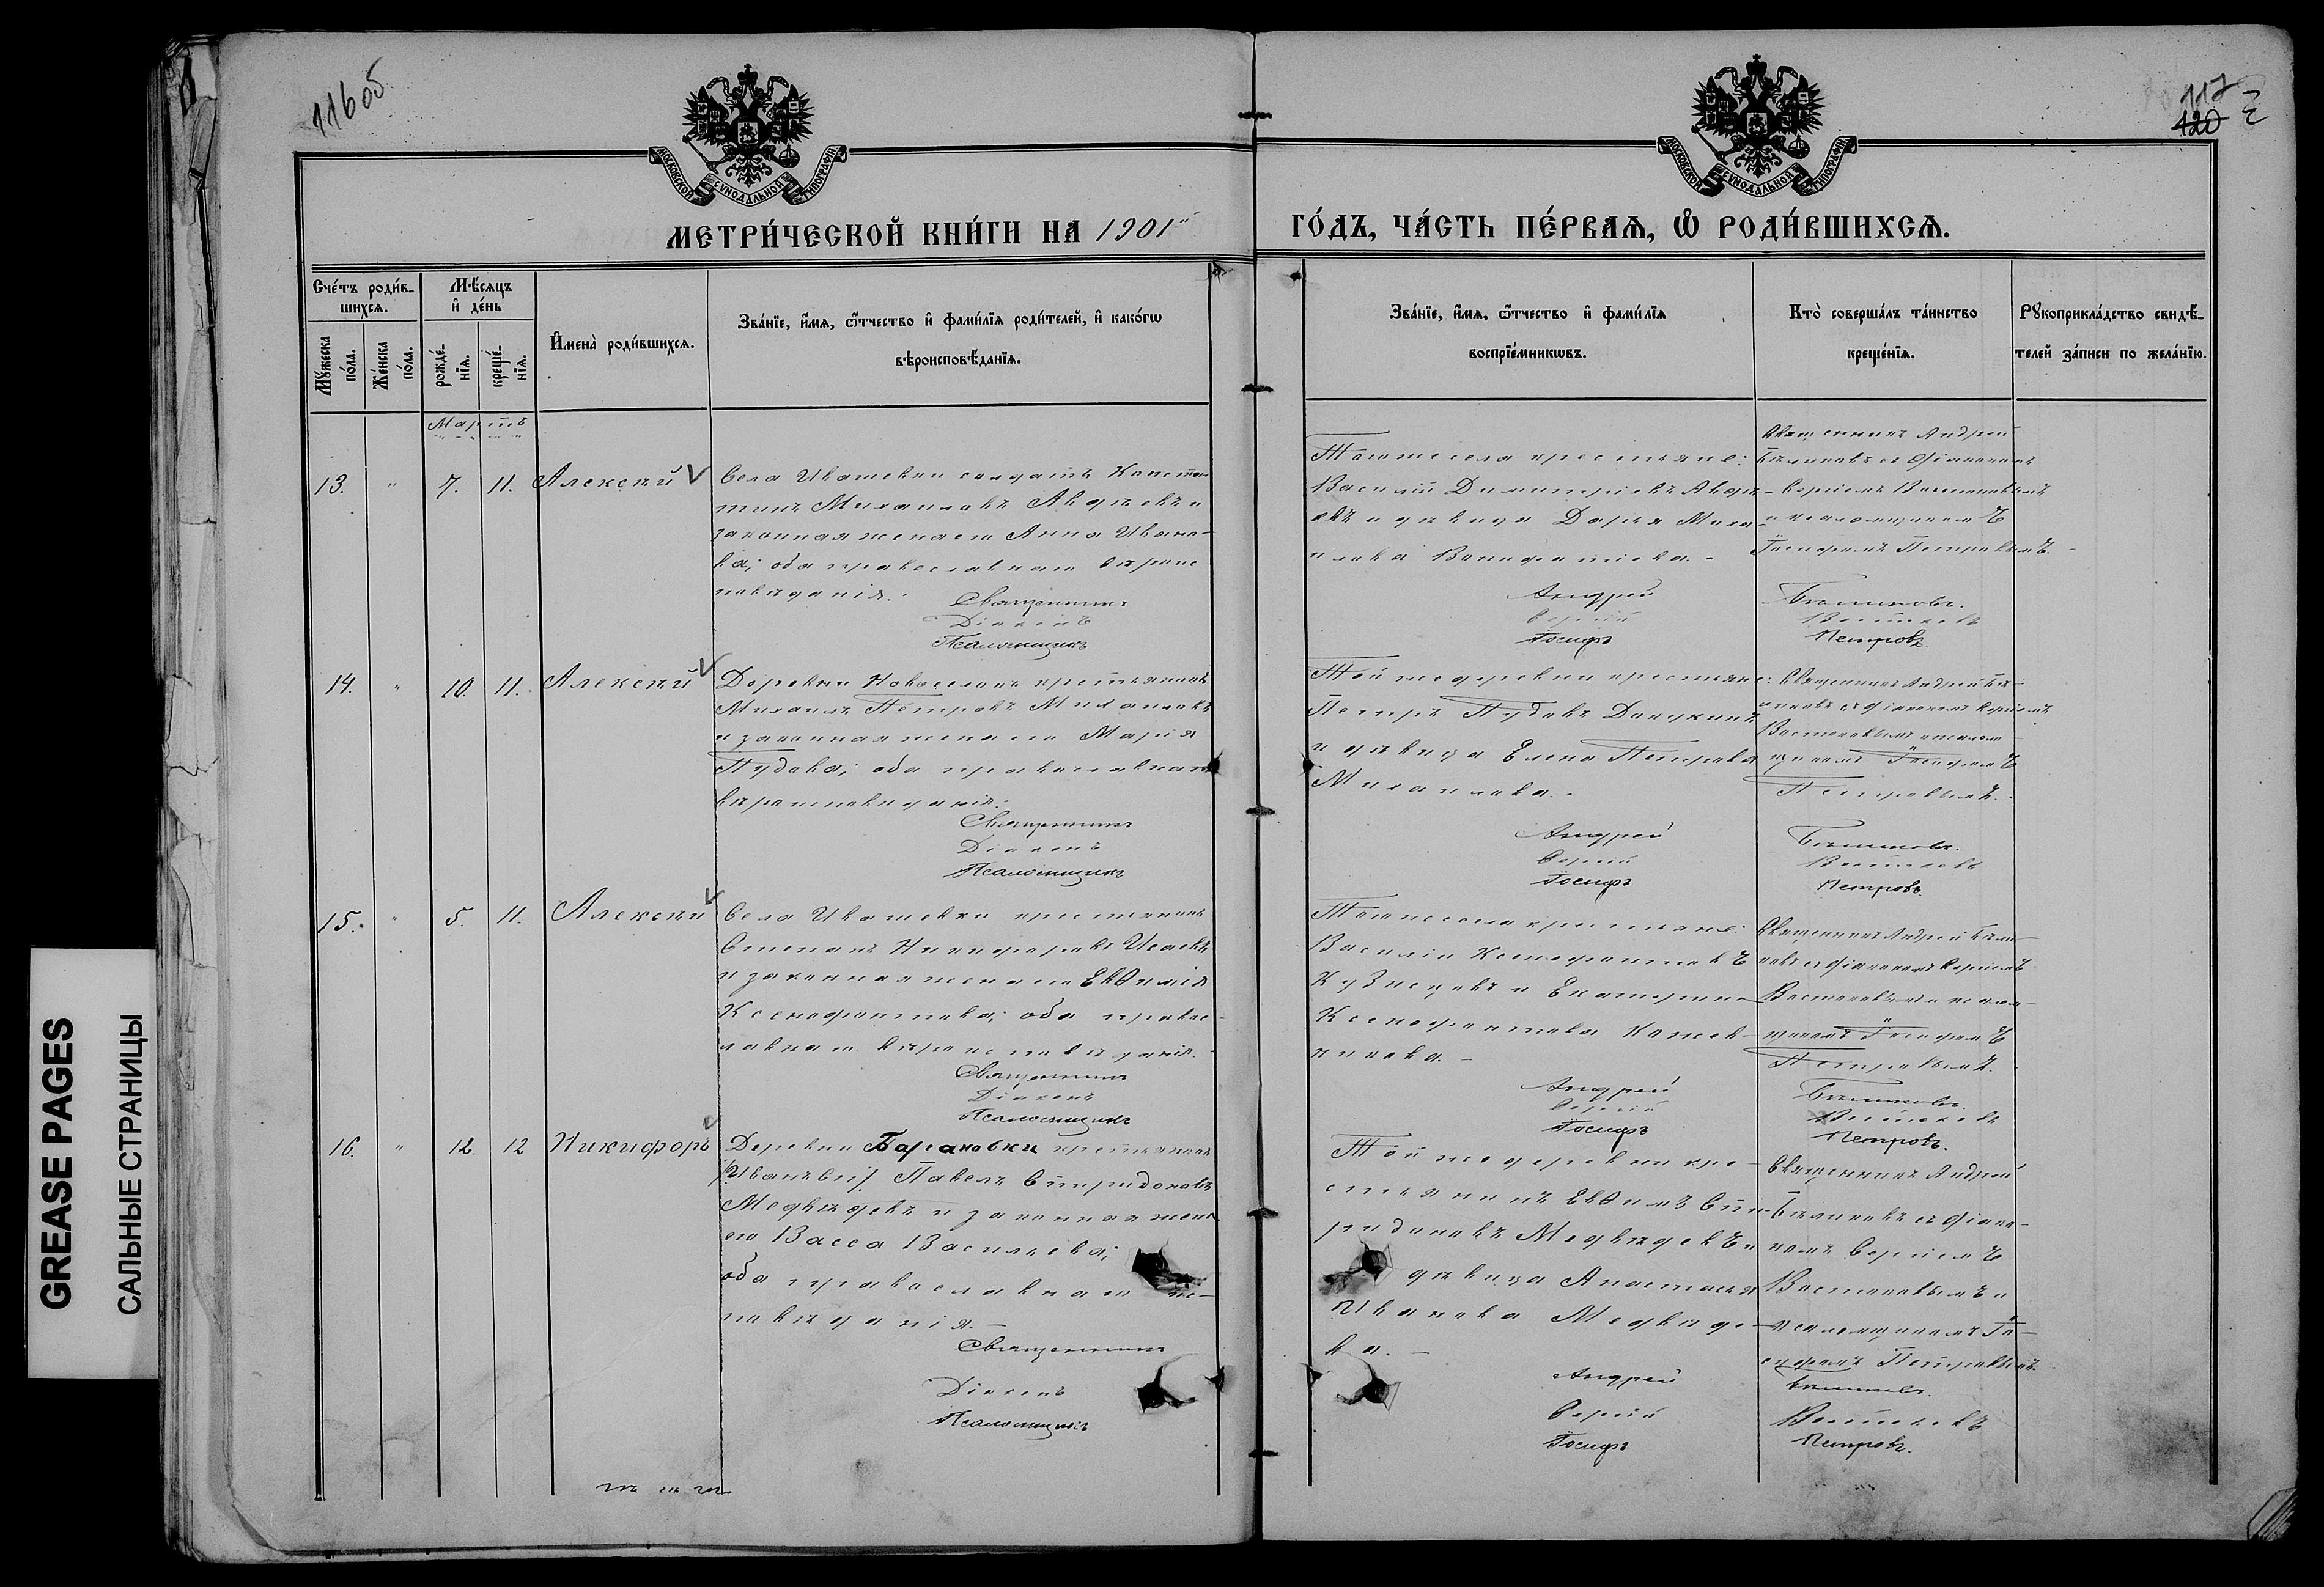 116об.
117
120
МОСКОВСКОЙ СѴНОДАЛЬНОЙ ТИПОГРАФІИ
МОСКОВСКОЙ СѴНОДАЛЬНОЙ ТИПОГРАФІИ
МЕТРИ́ЧЕСКОЙ КНИ́ГИ НА 1901й
ГО́ДЪ, ЧА́СТЬ ПЕ́РВАѦ, Ѽ РОДИ́ВШИХСѦ.
Сче́тъ роди́в-
шихсѧ.
Мꙋ́жеска по́ла.
Же́нска по́ла.
Мѣ́сѧцъ
и҆ де́нь
рожде́-
нїѧ.
креще́-
нїѧ.
И҆мена̀ роди́вшихсѧ.
Зва́нїе, и҆́мѧ, ѻ҆́тчество и҆ фами́лїѧ роди́телей, и҆ како́гѡ
вѣроисповѣ́данїѧ.
Зва́нїе, и҆́мѧ, ѻ҆́тчество и҆ фами́лїѧ
воспрїе́мникѡвъ.
Кто̀ соверша́лъ та́инство
креще́нїѧ.
Рꙋкоприкла́дство свидѣ́-
телей за́писи по жела́нїю.
Мартъ
13. " 7. 11. Алексѣй
Села Ивашевки солдатъ Констан
тинъ Михаиловъ Авдѣевъ и
законная жена его Анна Ивано-
ва; оба православнаго вѣроис
повѣданія.
Священникъ
Діаконъ
Псаломщикъ
Того же села крестьяне:
Василій Димитріевъ Авдѣ-
евъ и дѣвица Дарья Миха
илова
Андрей
Сергій
Іосифъ
Священникъ Андрей
Бѣликовъ съ діакономъ
Сергіемъ Востоковымъ
и псаломщикомъ
Іосифомъ Петровымъ.
Бѣликовъ.
Востоковъ
Петровъ.
14. " 10. 11. Алексѣй
Деревни крестьянинъ
Михаилъ Петровъ Михаиловъ
и законная жена его Марія
Пудова; оба православнаго
вѣроисповѣданія.
Священникъ
Діаконъ
Псаломщикъ
Той же деревни крестьяне:
Петръ Пудовъ
и дѣвица Елена Петрова
Михаилова.
Андрей
Сергій
Іосифъ
Священникъ Андрей Бѣ-
ликовъ съ діакономъ Сергіемъ
Востоковымъ и псалом-
щикомъ Іосифомъ
Петровымъ.
Бѣликовъ.
Востоковъ
Петровъ.
15. " 5. 11. Алексѣй
Села Ивашевки крестьянинъ
Степанъ Никифоровъ Исаевъ
и законная жена его Евѳимія
Ксенофонтова; оба правос-
лавнаго вѣроисповѣданія.
Священникъ
Діаконъ
Псаломщикъ
Того же села крестьяне:
Василій Ксенофонтовъ
Кузнецовъ и Екатерина
Ксенофонтова Кожев-
никова.
Андрей
Сергій
Іосифъ
Священникъ Андрей Бѣли-
ковъ съ діакономъ Сергіемъ
Востоковымъ и псалом-
щикомъ Іосифомъ
Петровымъ.
Бѣликовъ.
Востоковъ
Петровъ.
16. " 12. 12 Никифоръ
Деревни Барановки крестьянинъ
Павелъ Спиридоновъ
Медвѣдевъ и законная жена
его Васса Васильева;
оба православнаго ис-
повѣданія.
Священникъ
Діаконъ
Псаломщикъ
Той же деревни кре-
стьянинъ Евѳимъ Спи-
ридоновъ Медвѣдевъ и
дѣвица Анастасія
Иванова Медвѣде-
ва.
Андрей
Сергій
Іосифъ
Священникъ Андрей
Бѣликовъ съ діако-
номъ Сергіемъ
Востоковымъ и
псаломщикомъ Іо-
сифомъ Петровымъ.
Бѣликовъ.
Востоковъ
Петровъ.
GREASE PAGES
САЛЬНЫЕ СТРАНИЦЫ